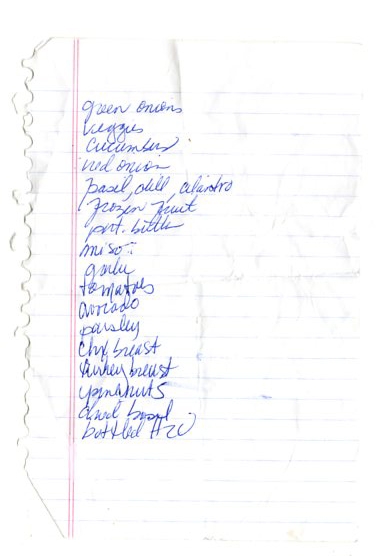 green onions
veggies
cucumbers
red onion
basil, dill, cilantro
frozen fruit
butter
miso
garlic
tomatoes
avocado
parsley
chx breast
turkey breast
pinenuts
dried basil
bottled H2O